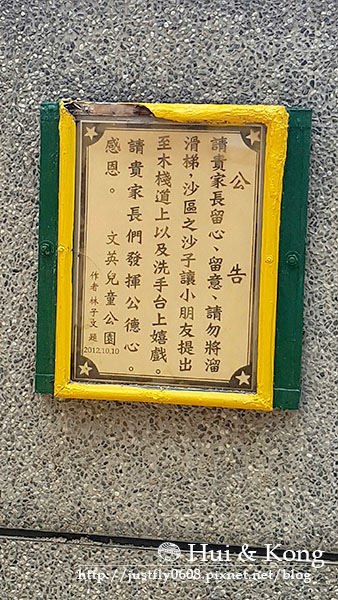 公告
請貴家長留心、留意、請勿將溜
滑梯，沙區之沙子讓小朋友提出
至木棧道上以及洗手台上嬉戲。
請貴家長們發揮公德心。
感恩。 文英兒童公園
作者林子文 題
2012.10.10
Hui & Kong
http://justfly0608.pixnet.net/blog